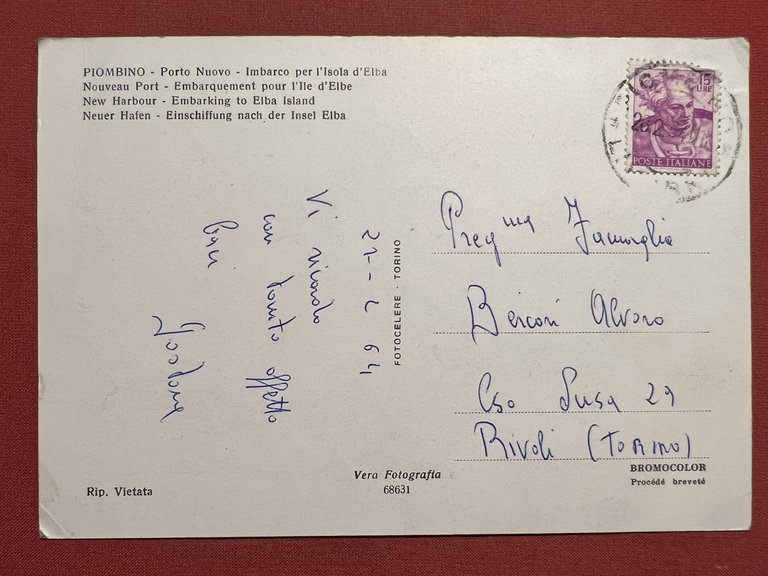 PIOMBINO - Porto Nuovo - Imbarco per l'Isola d'Elba
Nouveau Port - Embarquement pour l'Ile d'Elbe
New Harbour - Embarking to Elba Island
Neuer Hafen - Einschiffung nach der Insel Elba
15
LIRE
POSTE ITALIANE
21-2 64
Vi ricordo
con tanto affetto
Baci
FOTOCELERE - TORINO
Preg ma Famiglia
Alvaro
Cso Susa 29
Rivoli (TORINO)
BROMOCOLOR
Procédé breveté
Vera Fotografia
68631
Rip. Vietata